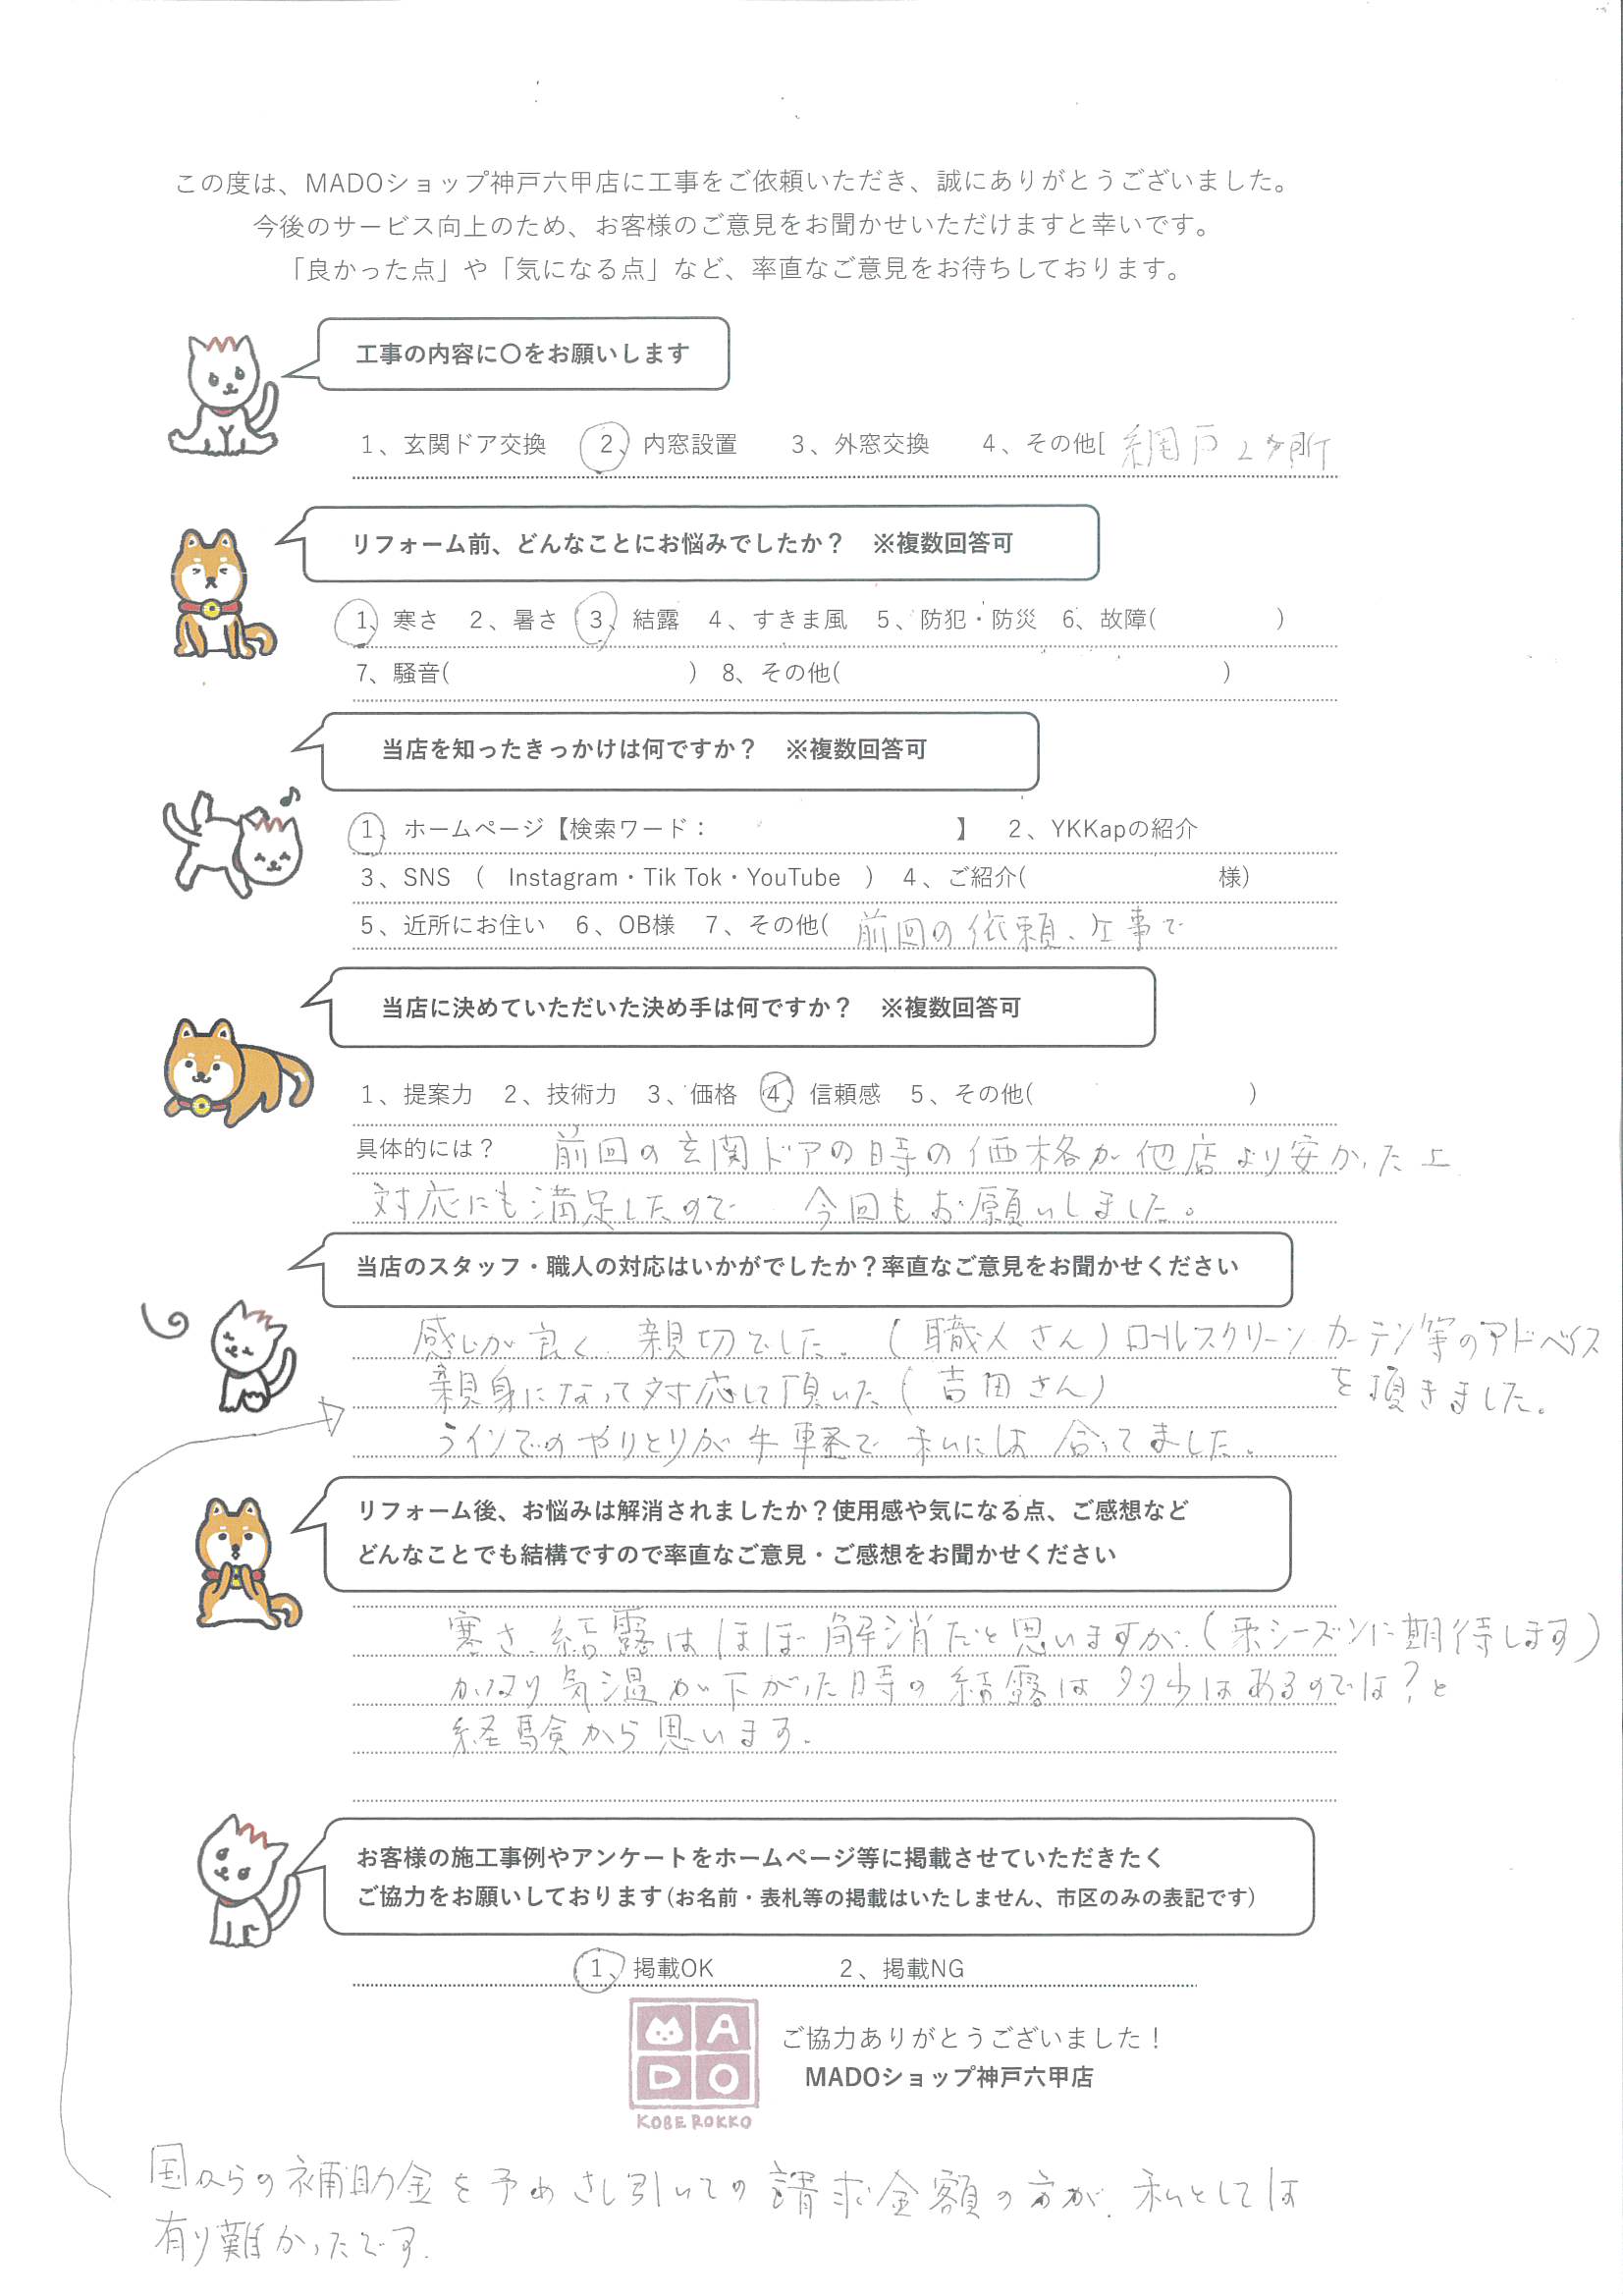 この度は、MADOショップ神戸六甲店に工事をご依頼いただき、誠にありがとうございました。
今後のサービス向上のため、お客様のご意見をお聞かせいただけますと幸いです。
「良かった点」や「気になる点」など、率直なご意見をお待ちしております。
工事の内容に〇をお願いします
1、玄関ドア交換 2、内窓設置 3、外窓交換 4、その他[ 網戸2ヶ所
リフォーム前、どんなことにお悩みでしたか？ ※複数回答可
1、寒さ 2、暑さ 3、結露 4、すきま風 5、防犯・防災 6、故障( )
7、騒音( ) 8、その他( )
当店を知ったきっかけは何ですか？ ※複数回答可
1、ホームページ【検索ワード： 】 2、YKKapの紹介
3、SNS ( Instagram・Tik Tok・YouTube ) 4、ご紹介( 様)
5、近所にお住い 6、OB様 7、その他( 前回の依頼、工事で
当店に決めていただいた決め手は何ですか？ ※複数回答可
1、提案力 2、技術力 3、価格 4、信頼感 5、その他( )
具体的には？ 前回の玄関ドアの時の価格が他店より安かった上
対応にも満足したので 今回もお願いしました。
当店のスタッフ・職人の対応はいかがでしたか？率直なご意見をお聞かせください
感じが良く、親切でした。(職人さん) ロールスクリーン カーテン等のアドベイス
親身になって対応して頂いた(吉田さん) を頂きました。
ラインでのやりとりが手軽で 私には合ってました。
リフォーム後、お悩みは解消されましたか？使用感や気になる点、ご感想など
どんなことでも結構ですので率直なご意見・ご感想をお聞かせください
寒さ、結露はほぼ解消だと思いますが、(来シーズンに期待します)
かなり気温が下がった時の結露は多少はあるのでは？と
経験から思います.
お客様の施工事例やアンケートをホームページ等に掲載させていただきたく
ご協力をお願いしております(お名前・表札等の掲載はいたしません、市区のみの表記です)
1、掲載OK 2、掲載NG
MADO
KOBE ROKKO
ご協力ありがとうございました！
MADOショップ神戸六甲店
国からの補助金を予めさし引いての請求金額の方が、私としては
有り難かったです.